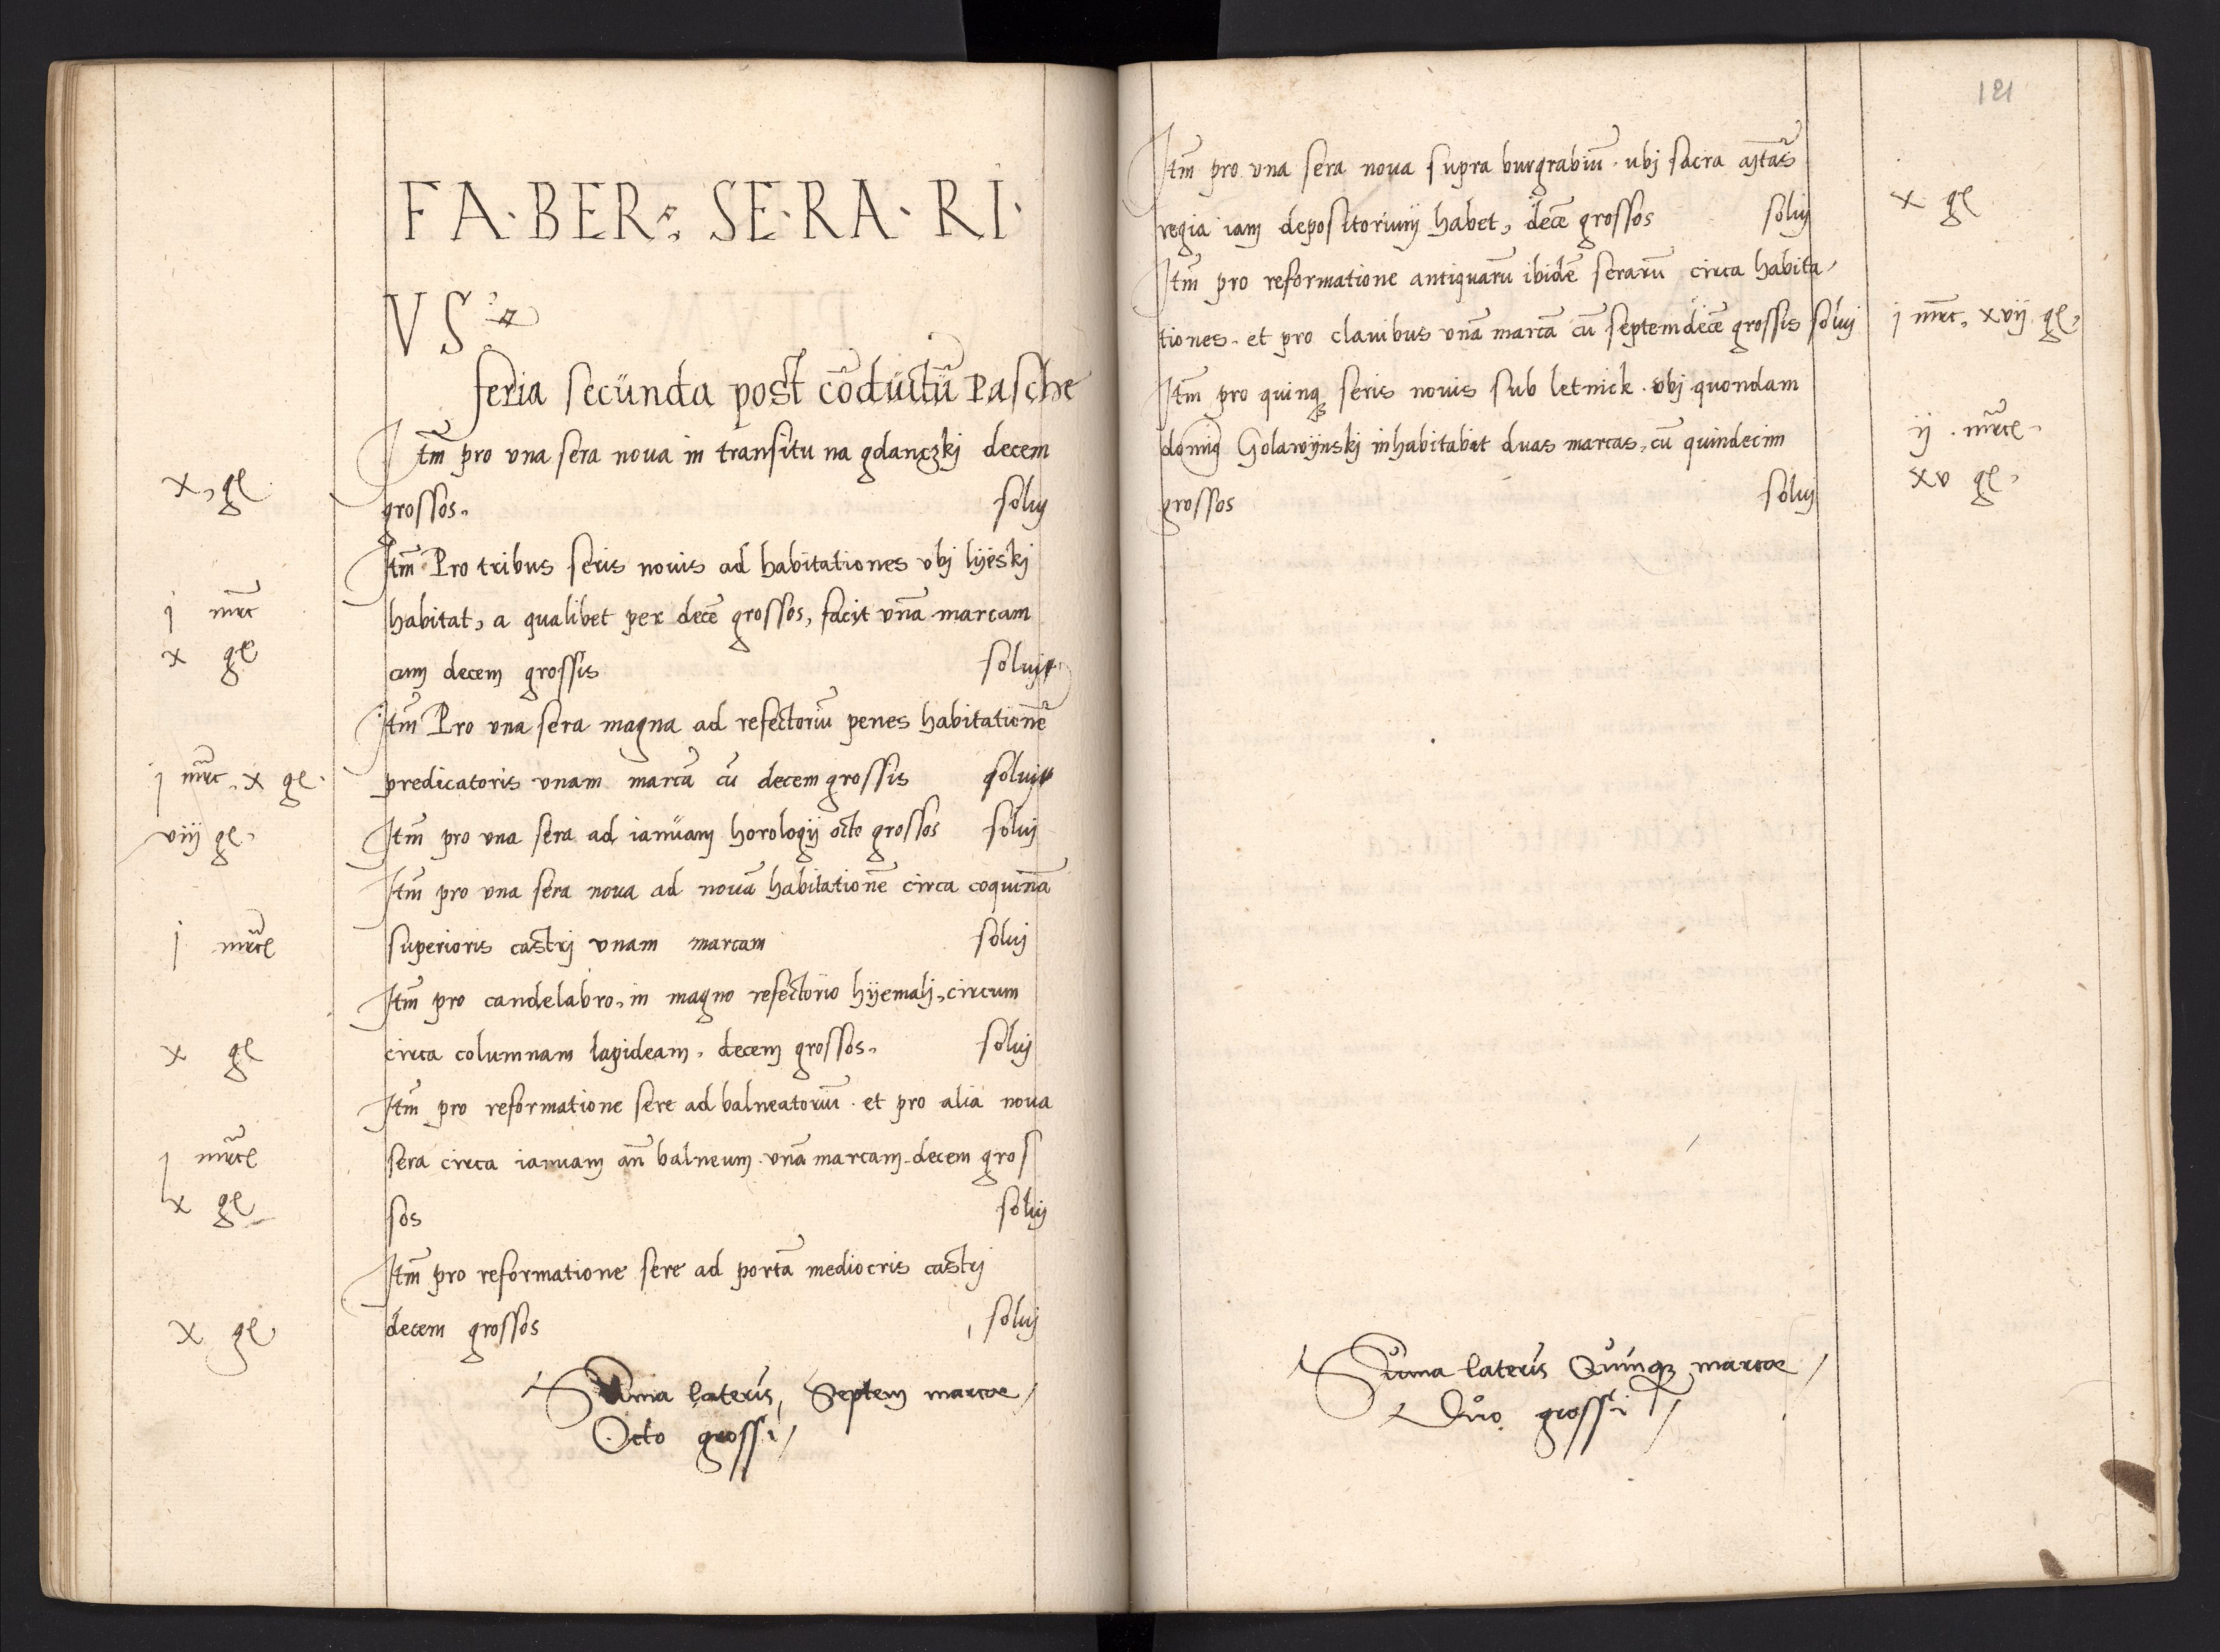 FA·BER SE·RA·RI·
VS
feria secünda post cõductũ Pasche
x gl
Itm̃ pro vna sera noua in transitu na gdanczkj decem
grossos. soluj
Itm̃ Pro tribus seris nouis ad habitationes vbj lyeskj
j mrc
habitat, a qualibet per decẽ grossos, facit vnã marcam
x gl
cum decem grossis soluj
Itm̃ Pro vna sera magna ad refectoriũ penes habitationẽ
j mrc. x gl.
predicatoris vnam marcã cũ decem grossis soluj
viij gl.
Itm̃ pro vna sera ad ianüam horologij octo grossos soluj
Itm̃ pro vna sera noua ad nouã habitationẽ circa coquinã
j mrc
superioris castrj vnam marcam soluj
Itm̃ pro candelabro, in magno refectorio hÿemalj, circum
x gl
circa columnam lapideam, decem grossos. soluj
Itm̃ pro reformatione sere ad balneatoriũ. et pro alia noua
j mrc
sera circa ianuam añ balneum. vnã marcam. decem gros
x gl
sos soluj
Itm̃ pro reformatione sere ad portã mediocris castrj
x gl
decem grossos soluj
Suma lateris, Septem marcae /
Octo grossi /
121
Itm̃ pro vna sera noua supra burgrabiũ. vbj sacra
x gl
regia iam depositorium habet, decẽ grossos soluj
Itm̃ pro reformatione antiquarũ ibidẽ serarũ circa habita
j mrc. xvij gl.
tiones. et pro clauibus vnã marcã cũ septemdecẽ grossis soluj
Itm̃ pro quinq seris nouis sub letnick. vbj quondam
ij. mrc.
Golawÿnskj inhabitabat duas marcas, cũ quindecim
xv gl.
grossos soluj
Suma lateris Quinq marcae /
Duo grossi /